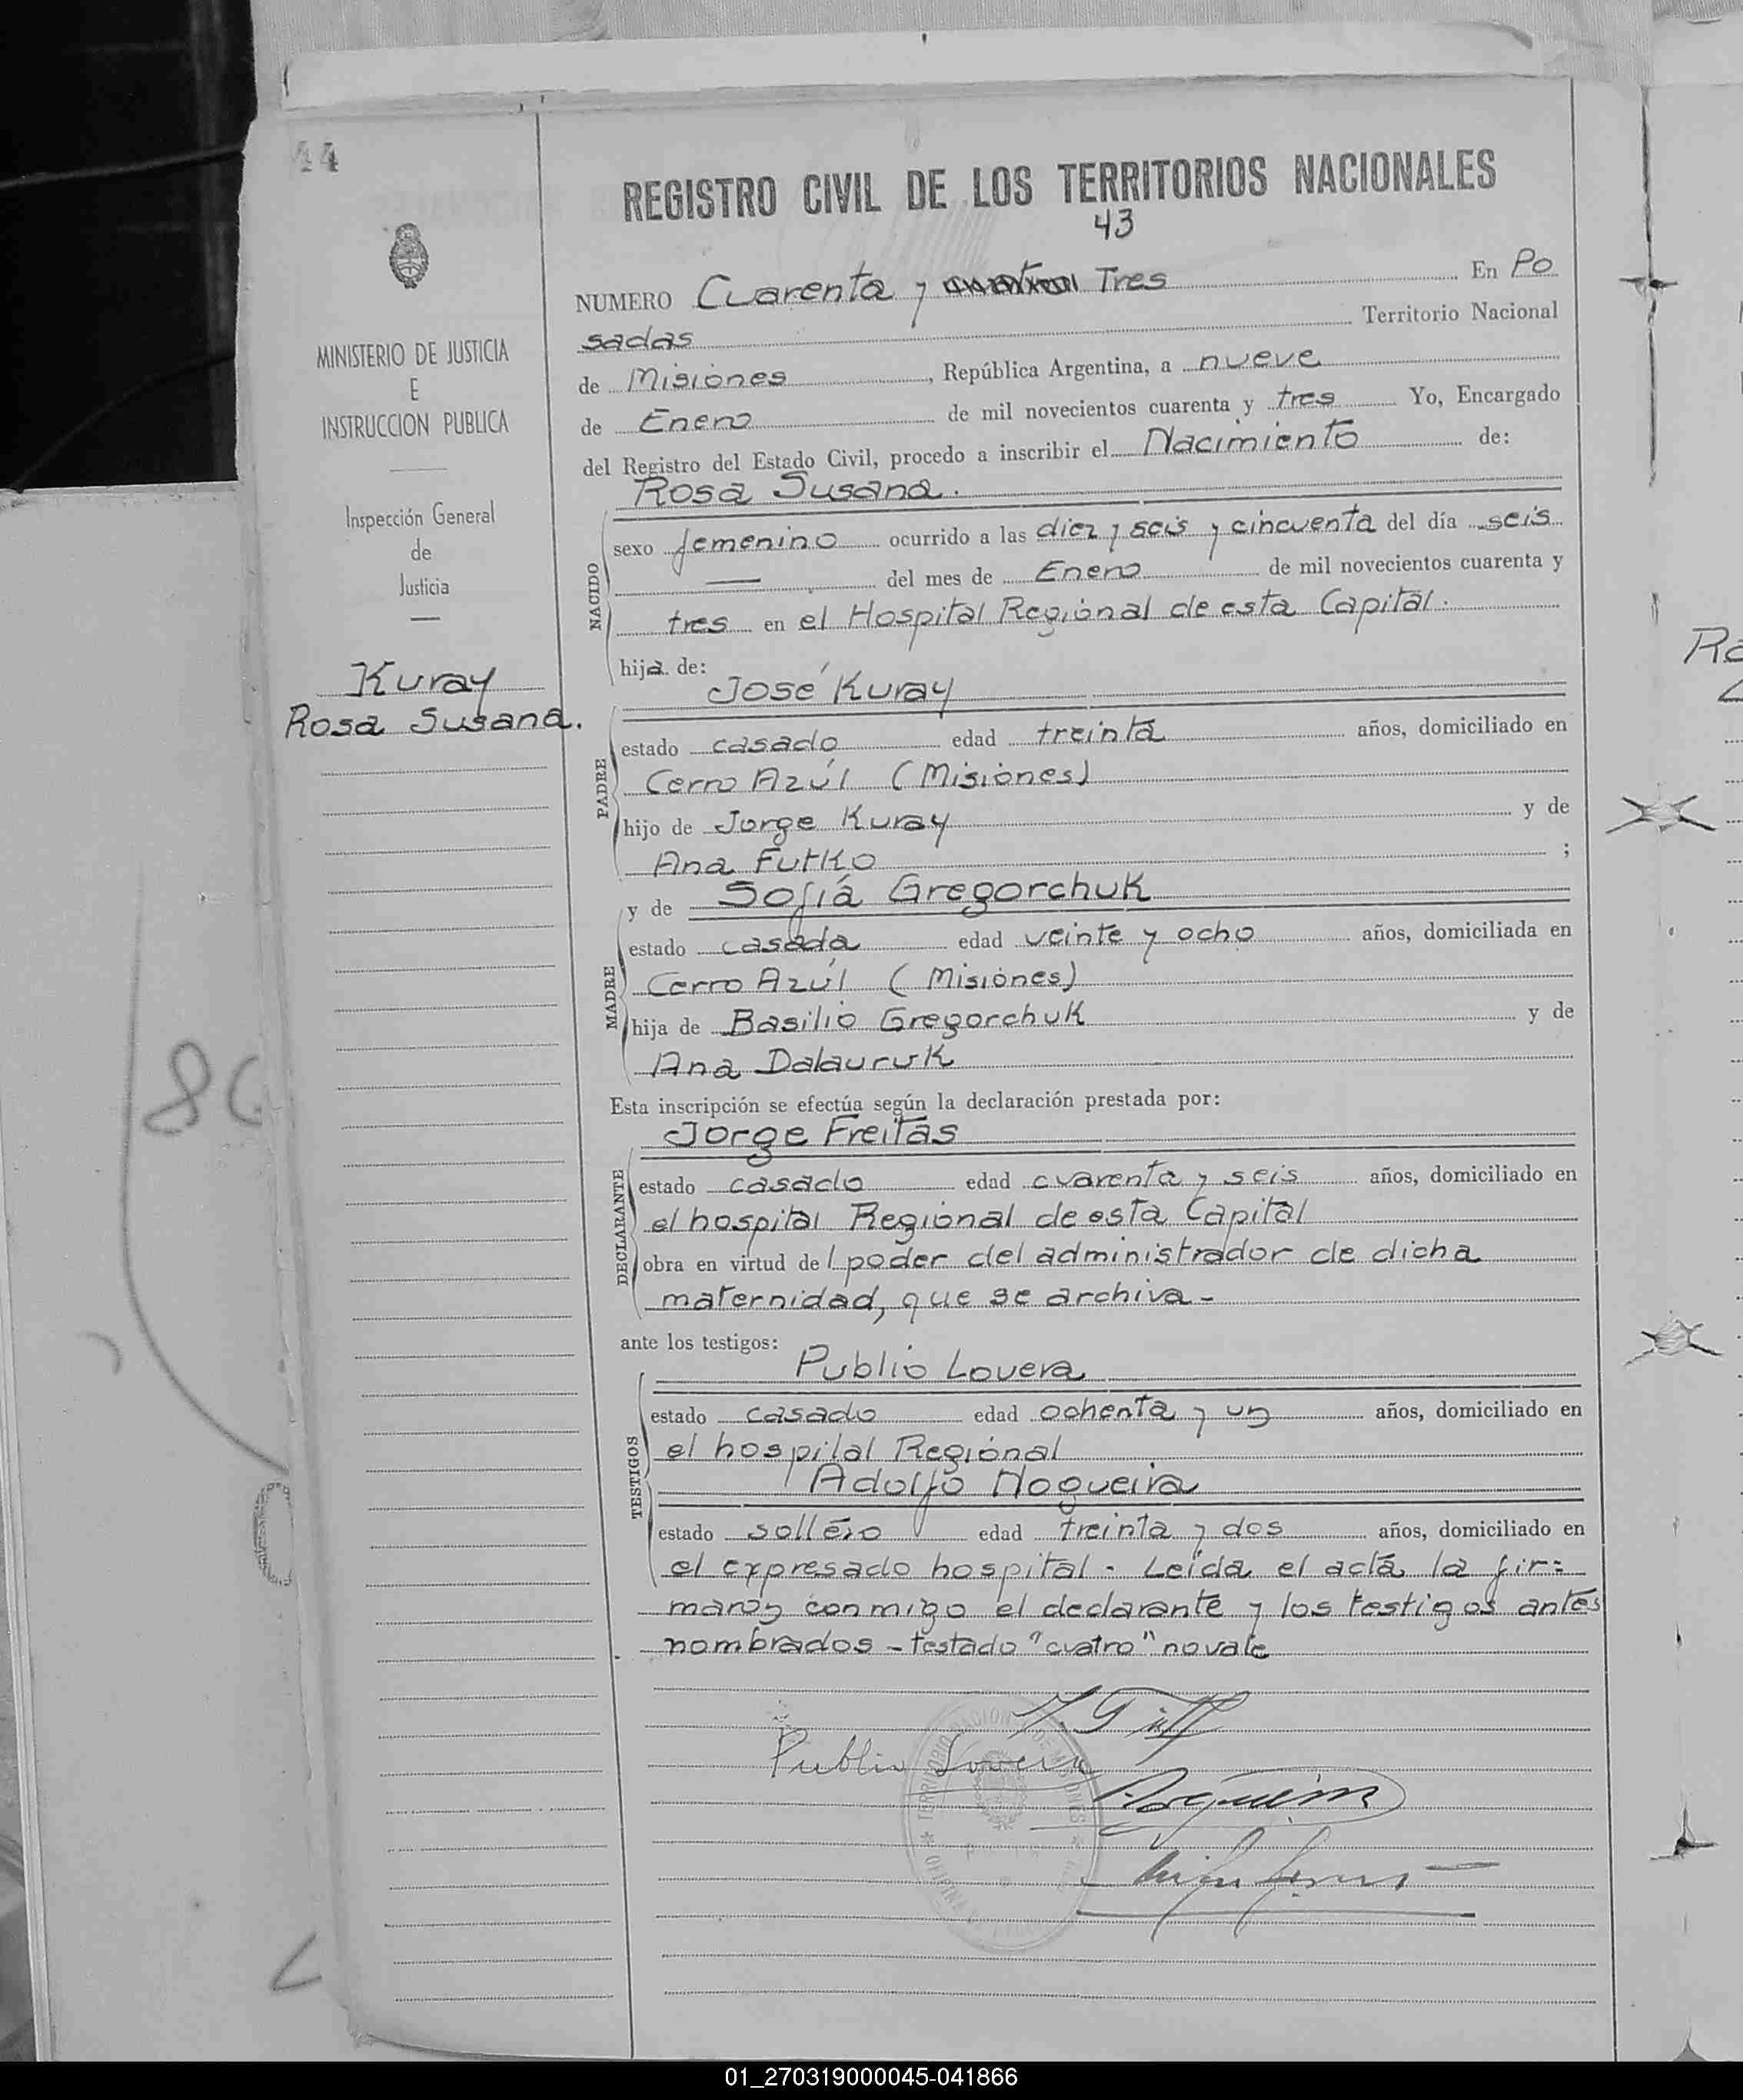 44
REGISTRO CIVIL DE LOS TERRITORIOS NACIONALES
43
NUMERO Cuarenta y cuatro Tres En Po
sadas Territorio Nacional
de Misiones, República Argentina, a nueve
de Enero de mil novecientos cuarenta y tres Yo, Encargado
del Registro del Estado Civil, procedo a inscribir el Nacimiento de:
Rosa Susana.
NACIDO
sexo femenino ocurrido a las diez y seis y cincuenta del día seis
— del mes de Enero de mil novecientos cuarenta y
tres en el Hospital Regional de esta Capital.
hija de:
José Kuray
PADRE
estado casado edad treinta años, domiciliado en
Cerro Azúl (Misiones)
hijo de Jorge Kuray y de
Ana Futko ;
y de Sofía Gregorchuk
MADRE
estado casada edad veinte y ocho años, domiciliada en
Cerro Azúl (Misiones)
hija de Basilio Gregorchuk y de
Ana Dalauruk
Esta inscripción se efectúa según la declaración prestada por:
Jorge Freitas
DECLARANTE
estado casado edad cuarenta y seis años, domiciliado en
el hospital Regional de esta Capital
obra en virtud del poder del administrador de dicha
maternidad, que se archiva -
ante los testigos:
Publio Lovera
TESTIGOS
estado casado edad ochenta y un años, domiciliado en
el hospital Regional
Adolfo Nogueira
estado soltero edad treinta y dos años, domiciliado en
el expresado hospital - Leída el acta la fir=
maron conmigo el declarante y los testigos antes
nombrados - testado "cuatro" no vale
Publio Lovera
Nogueira
MINISTERIO DE JUSTICIA
E
INSTRUCCION PUBLICA
Inspección General
de
Justicia
Kuray
Rosa Susana.
86
01_270319000045-041866